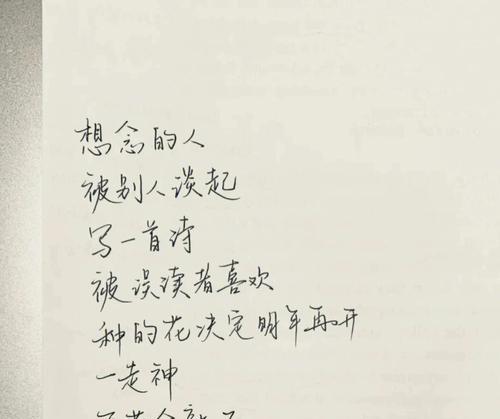 想念的人
被别人谈起
写一首诗
被误读者喜欢
种的花决定明年再开
一走神